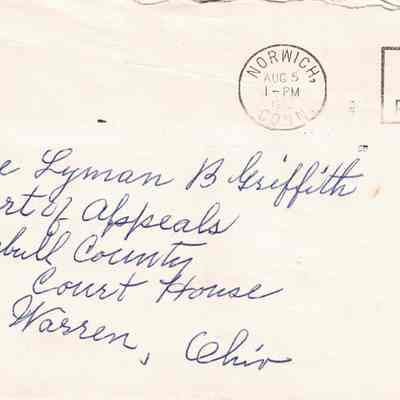 NORWICH,
AUG 5
1-PM
CONN.
e Lyman B Griffith
rt of Appeals
bull County
Court House
Warren, Ohio